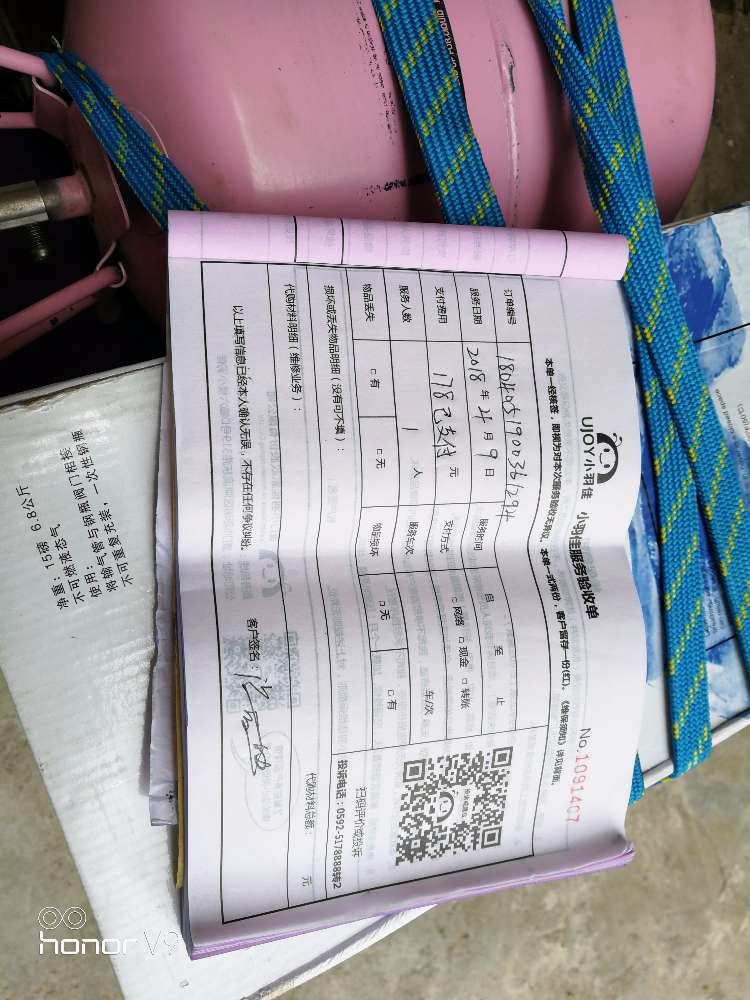 UJOY小羽佳 小羽佳服务验收单
No.1091407
本单一经核签，即视为对本次服务验收无异议。 本单一式两份，客户留存一份(红)。 《维保须知》详见背面。
订单编号
服务日期 2018 年 4 月 9 日 服务时间 自 至 止
支付费用 178已支付 元 支付方式 □ 网络 □ 现金 □ 转账
服务人数 1 人 服务车次 车/次
物品丢失 □ 有 □ 无 物品损坏 □ 无 □ 有
扫码评价或投诉
投诉电话：0592-5178888转2
损坏或丢失物品明细（没有可不填）：
代购材料明细（维修业务）： 代购材料总额： 元
以上填写信息已经本人确认无误，不存在任何争议纠纷。 客户签名：
净重：15磅 6.8公斤
不可燃液态气
使用：
将输气管与钢瓶阀门相接
不可重复充装，一次性钢瓶
honor V9